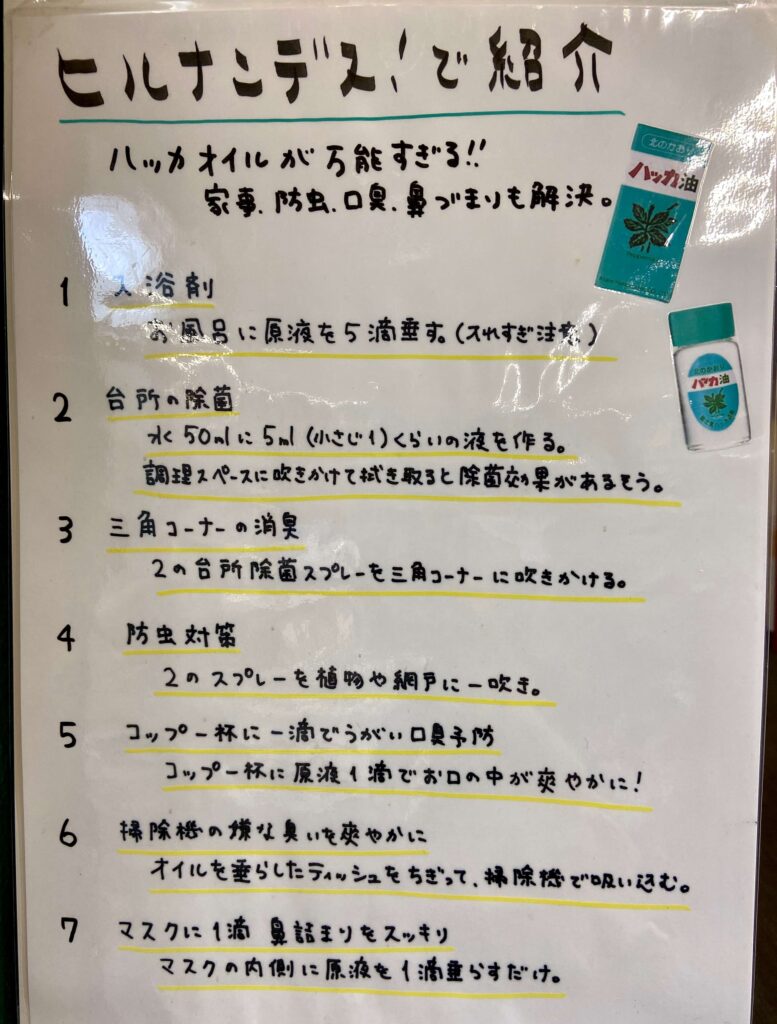 ヒルナンデス!で紹介
ハッカオイルが万能すぎる!!
家事、防虫、口臭、鼻づまりも解決。
北のかおり
ハッカ油
1 入浴剤
お風呂に原液を5滴垂す。(入れすぎ注意)
北のかおり
ハッカ油
2 台所の除菌
水50mlに5ml(小さじ1)くらいの液を作る。
調理スペースに吹きかけて拭き取ると除菌効果があるそう。
3 三角コーナーの消臭
2の台所除菌スプレーを三角コーナーに吹きかける。
4 防虫対策
2のスプレーを植物や網戸に一吹き。
5 コップ一杯に一滴でうがい口臭予防
コップ一杯に原液1滴でお口の中が爽やかに!
6 掃除機の嫌な臭いを爽やかに
オイルを垂らしたティッシュをちぎって、掃除機で吸い込む。
7 マスクに1滴 鼻詰まりをスッキリ
マスクの内側に原液を1滴垂らすだけ。